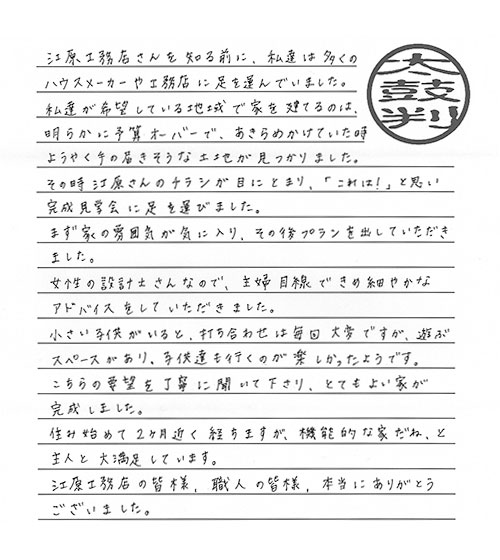 江原工務店さんを知る前に、私達は多くの
ハウスメーカーや工務店に足を運んでいました。
私達が希望している地域で家を建てるのは、
明らかに予算オーバーで、あきらめかけていた時
ようやく手の届きそうな土地が見つかりました。
その時江原さんのチラシが目にとまり、「これは!」と思い
完成見学会に足を運びました。
まず家の雰囲気が気に入り、その後プランを出していただき
ました。
女性の設計士さんなので、主婦目線できめ細やかな
アドバイスをしていただきました。
小さい子供がいると、打ち合わせは毎回大変ですが、遊ぶ
スペースがあり、子供達も行くのが楽しかったようです。
こちらの要望を丁寧に聞いて下さり、とてもよい家が
完成しました。
住み始めて2ヶ月近く経ちますが、機能的な家だね、と
主人と大満足しています。
江原工務店の皆様、職人の皆様、本当にありがとう
ございました。
太鼓判